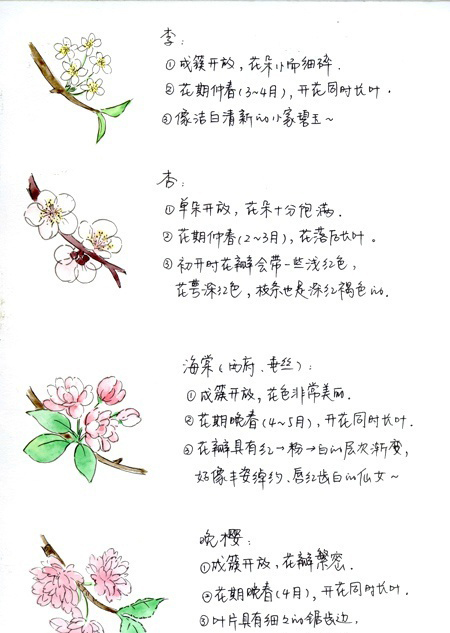 李：
①成簇开放，花朵小而细碎.
②花期仲春(3~4月)，开花同时长叶.
③像洁白清新的小家碧玉~
杏：
①单朵开放，花朵十分饱满.
②花期仲春(2~3月)，花落后长叶。
③初开时花瓣会带一些浅红色，
花萼深红色，枝条也是深红褐色的.
海棠(西府、垂丝)：
①成簇开放，花色非常美丽.
②花期晚春(4~5月)，开花同时长叶.
③花瓣具有红→粉→白的层次渐变，
好像丰姿绰约、唇红齿白的仙女~
晚樱：
①成簇开放，花瓣繁密.
②花期晚春(4月)，开花同时长叶.
③叶片具有细细的锯齿边.